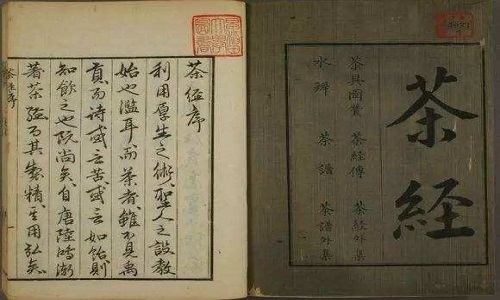 茶經
茶具圖贊 茶經傳 茶經外集
水辨 茶譜 茶譜外集
茶經序
利用厚生之術聖人之設教
始也濫耳而茶者雖不見禹
貢而詩或言苦或言如飴則
知飲之也既尚矣自唐陸鴻漸
著茶經而其製精其用弘矣
茶經序